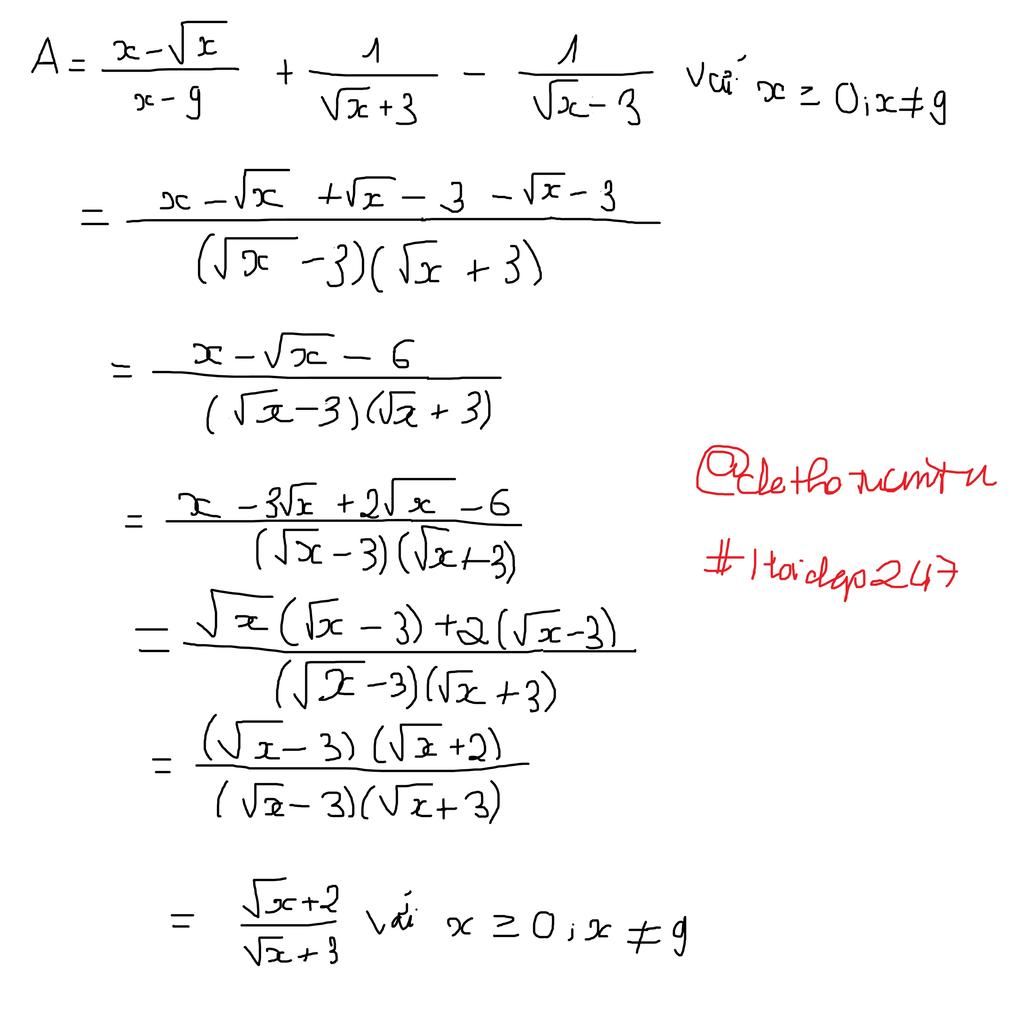 A = \frac{x-\sqrt{x}}{x-9} + \frac{1}{\sqrt{x}+3} - \frac{1}{\sqrt{x}-3} với x ≥ 0; x ≠ 9
= \frac{x-\sqrt{x}+\sqrt{x}-3-\sqrt{x}-3}{(\sqrt{x}-3)(\sqrt{x}+3)}
= \frac{x-\sqrt{x}-6}{(\sqrt{x}-3)(\sqrt{x}+3)}
= \frac{x-3\sqrt{x}+2\sqrt{x}-6}{(\sqrt{x}-3)(\sqrt{x}+3)}
= \frac{\sqrt{x}(\sqrt{x}-3)+2(\sqrt{x}-3)}{(\sqrt{x}-3)(\sqrt{x}+3)}
= \frac{(\sqrt{x}-3)(\sqrt{x}+2)}{(\sqrt{x}-3)(\sqrt{x}+3)}
= \frac{\sqrt{x}+2}{\sqrt{x}+3} với x ≥ 0; x ≠ 9